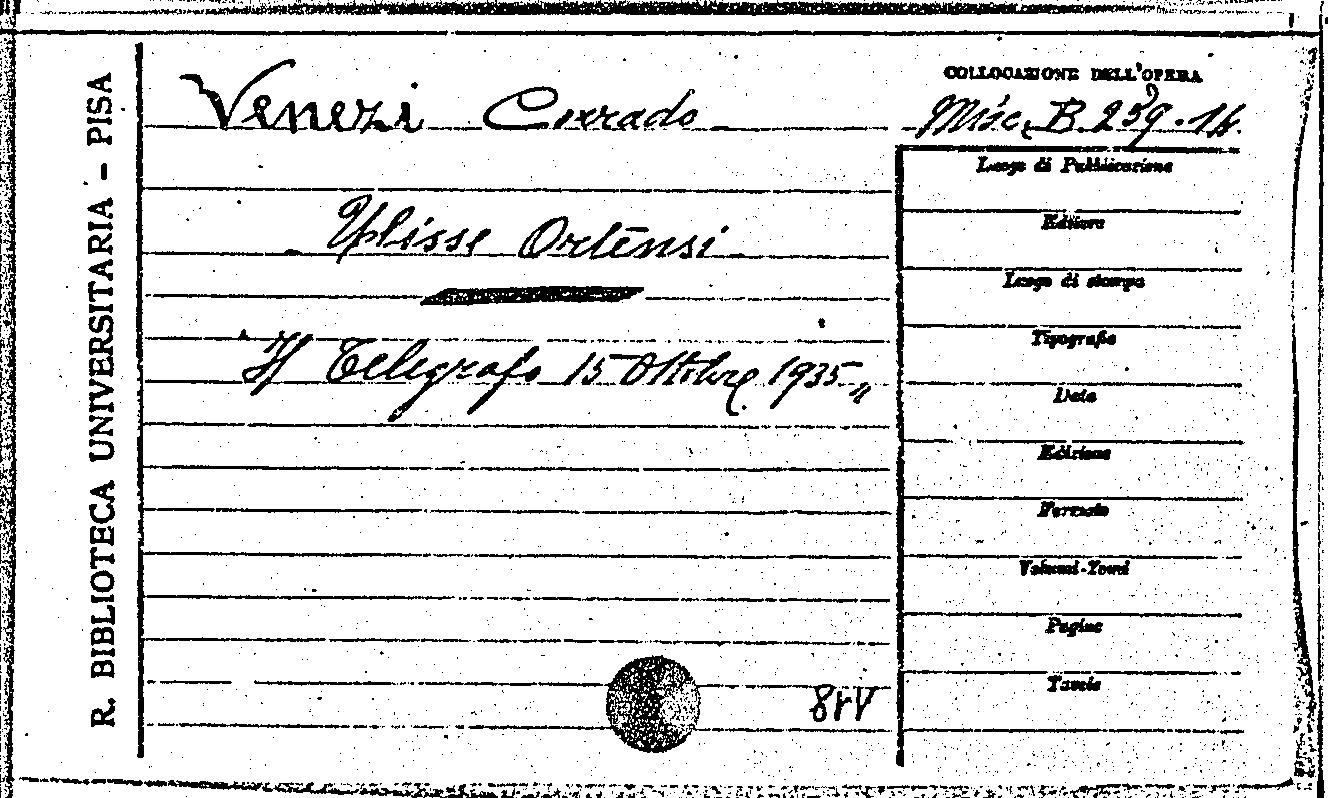 R. BIBLIOTECA UNIVERSITARIA - PISA
Venezi Corrado
Ulisse Ortensi
"Il Telegrafo 15 Ottobre 1935"
COLLOCAZIONE DELL'OPERA
Misc. B. 239. 16.
Luogo di Pubblicazione
Editore
Luogo di stampa
Tipografia
Data
Edizione
Formato
Volumi-Tomi
Pagine
Tavole